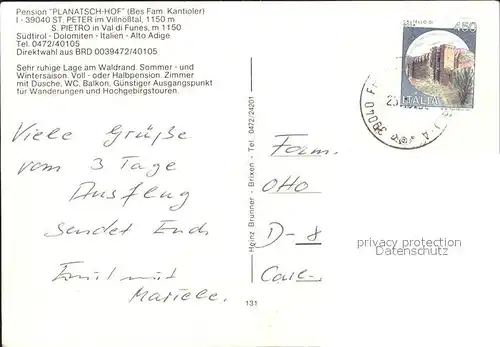 Pension "PLANATSCH-HOF" (Bes Fam. Kantioler)
I - 39040 ST. PETER im Villnößtal, 1150 m
S. PIETRO in Val di Funes, m 1150
Südtirol - Dolomiten - Italien - Alto Adige
Tel. 0472/40105
Direktwahl aus BRD 0039472/40105
Sehr ruhige Lage am Waldrand. Sommer - und
Wintersaison. Voll - oder Halbpension. Zimmer
mit Dusche, WC, Balkon. Günstiger Ausgangspunkt
für Wanderungen und Hochgebirgstouren.
Viele Grüße
vom 3 Tage
Ausflug
sendet Euch
Emil mit
Mariele.
Heinz Brunner - Brixen - Tel. 0472/24201
131
450
ITALIA
39040
Fam.
Otto
D-8
privacy protection
Datenschutz